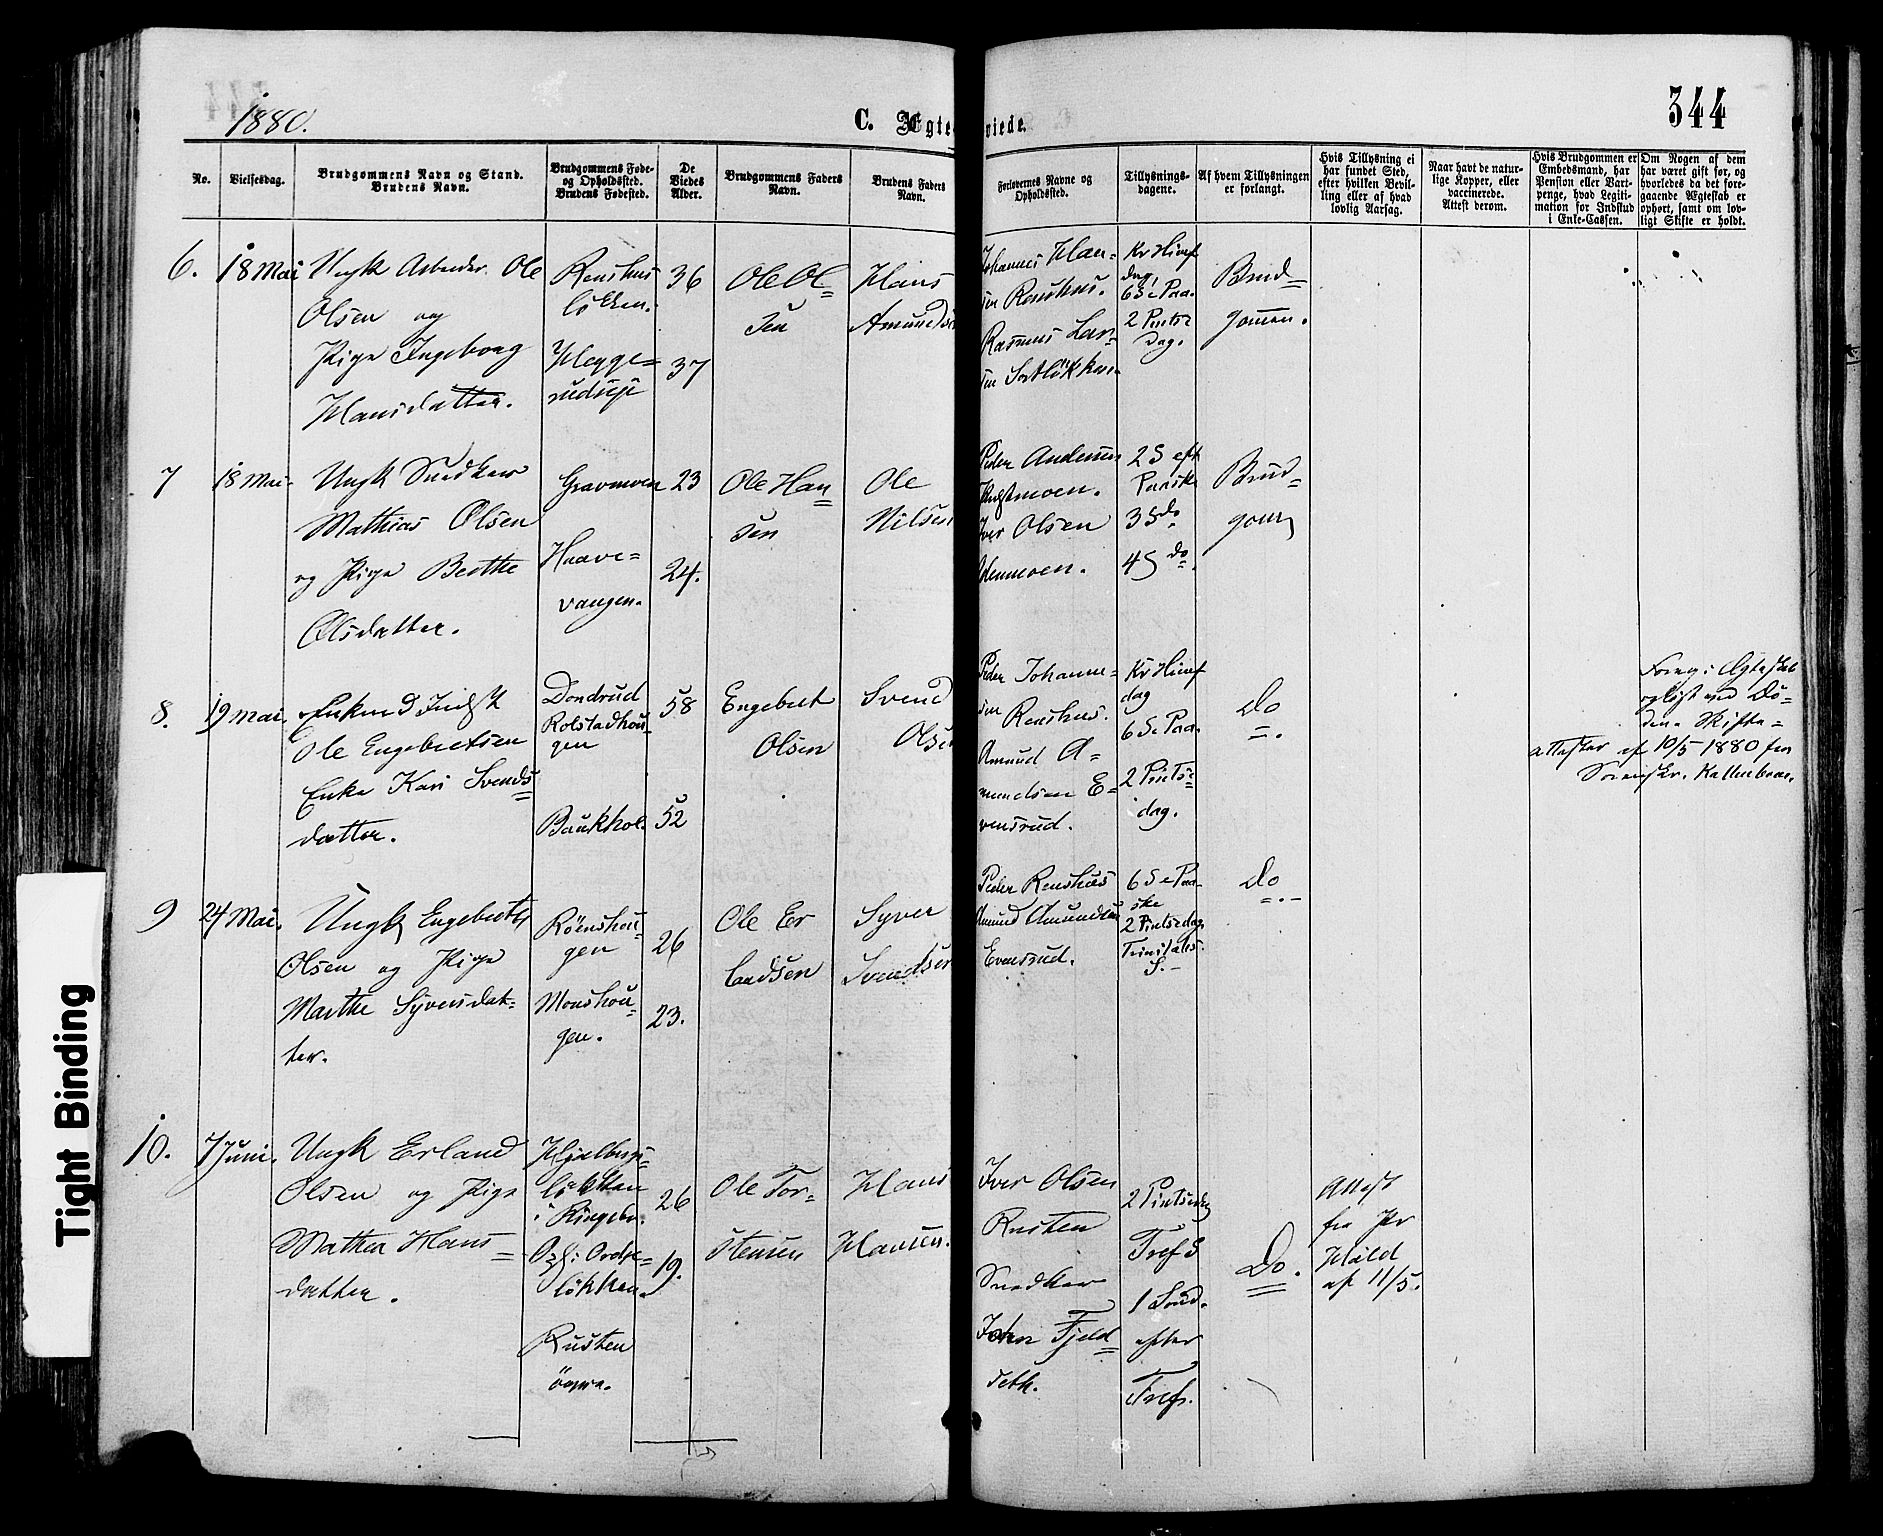 1880.
C. Ægte viede.
344
No.
Vielsesdag.
Brudgommens Navn og Stand.
Brudens Navn.
Brudgommens Føde-
og Opholdssted.
Brudens Fødested.
De
Viedes
Alder.
Brudgommens Faders
Navn.
Brudens Faders
Navn.
Forlovernes Navne og
Opholdssted.
Tillysnings-
dagene.
Af hvem Tillysningen
er forlangt.
Hvis Tillysning ei
har fundet Sted,
efter hvilken Bevil-
ling eller af hvad
lovlig Aarsag.
Naar havt de natur-
lige Kopper, eller
vaccinerede.
Attest derom.
Hvis Brudgommen er
Embedsmand, har
Pension eller Vart-
penge, hvad Legiti-
mation for Indskud
i Enke-Cassen.
Om Nogen af dem
har været gift før, og
hvorledes da det fore-
gaaende Ægteskab er
ophørt, samt om lov-
ligt Skifte er holdt.
6.
18 Mai
Ungk Arbeider Ole
Olsen og
Pige Ingeborg
Hansdatter.
Renshus
løkken.
Hegge-
rudseje
36
37
Ole Ol-
sen
Hans
Amundse
Johannes Han-
sen Renshus.
Rasmus Lar-
sen Sortløkken
Kr Himf
dag,
6 S e Paa.
2 Pintse
Dag.
Brud-
gommen.
7
18 Mai
Ungk Snedker
Mathias Olsen
og Pige Berthe
Olsdatter.
Gravmoen
Haave-
vangen.
23
24.
Ole Han
sen
Ole
Nilsen
Peder Andersen
moen.
Iver Olsen
moen.
2 S eft
Paaske
3 S do
4 S do.
Brud-
gom
8.
19 Mai.
Enkem
Ole Engebretsen
Enke Kari Svends-
datter.
Dondrud
Rolstadhou-
gen
Baukhol
58
52
Engebret
Olsen
Svend
Olsen
Peder Johanne-
sen Renshus.
Amund A-
mundsen E-
vensrud.
Kr Himf
dag
6 S e Paa.
2 Pintse
dag.
Do
Forrig Ægteskab
opløst ved Dø-
den. Skifte-
attester af 10/5 1880 fra
Sorenskr.
9
24 Mai.
Ungk Engebret
Olsen og Pige
Marthe Syversdat-
ter.
Röenshou-
gen
Monshou-
gen.
26
23.
Ole Er
landsen
Syver
Svendsen
Peder Renshus
Amund Amundsen
Evensrud.
6 S e Paa-
ske
2 Pintsedag
Trinitatis
S.
Do
10.
7 Juni.
Ungk Erland
Olsen og Pige
Mathea Hans-
datter.
løkken
i Ringebu.
løkken.
Rusten
øvre.
26
19.
Ole Tor-
stensen
Hans
Hansen.
Iver Olsen
Rusten
Snedker
Johan Fjeld-
seth.
2 Pintsedag
Tref S
1 Sönd.
efter
Tref.
Do.
Attest
fra Pr
Hald
af 11/5.
Tight Binding